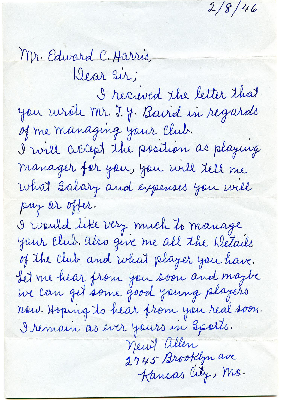 2/8/46
Mr. Edward C. Harris,
Dear Sir;
I recieved the letter that
you wrote Mr. T. Y. Baird in regards
of me managing your Club.
I will accept the position as playing
manager for you, you will tell me
what salary and expenses you will
pay or offer.
I would like very much to manage
your Club. Also give me all the Details
of the Club and what player you have.
Let me hear from you soon and maybe
we can get some good young players
now. Hoping to hear from you real soon.
I remain as ever yours in Sports.
Newt Allen
2745 Brooklyn ave
Kansas City, Mo.